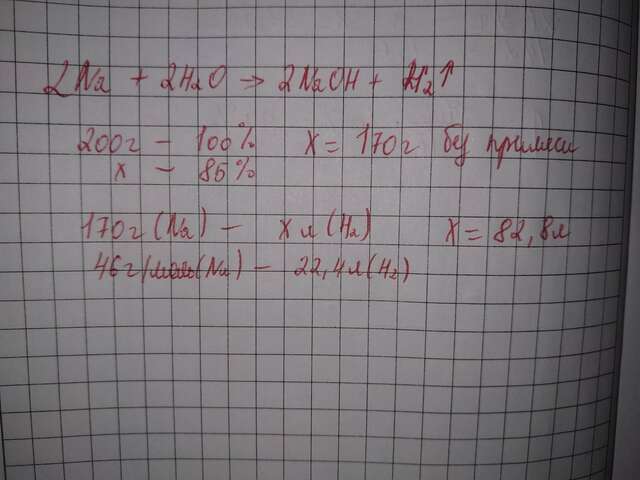 2Na + 2H₂O → 2NaOH + H₂↑
200г – 100% x = 170г без примеси
x – 85%
170г (Na) – x л (H₂) x = 82,8л
46г/моль(Na) – 22,4л(H₂)